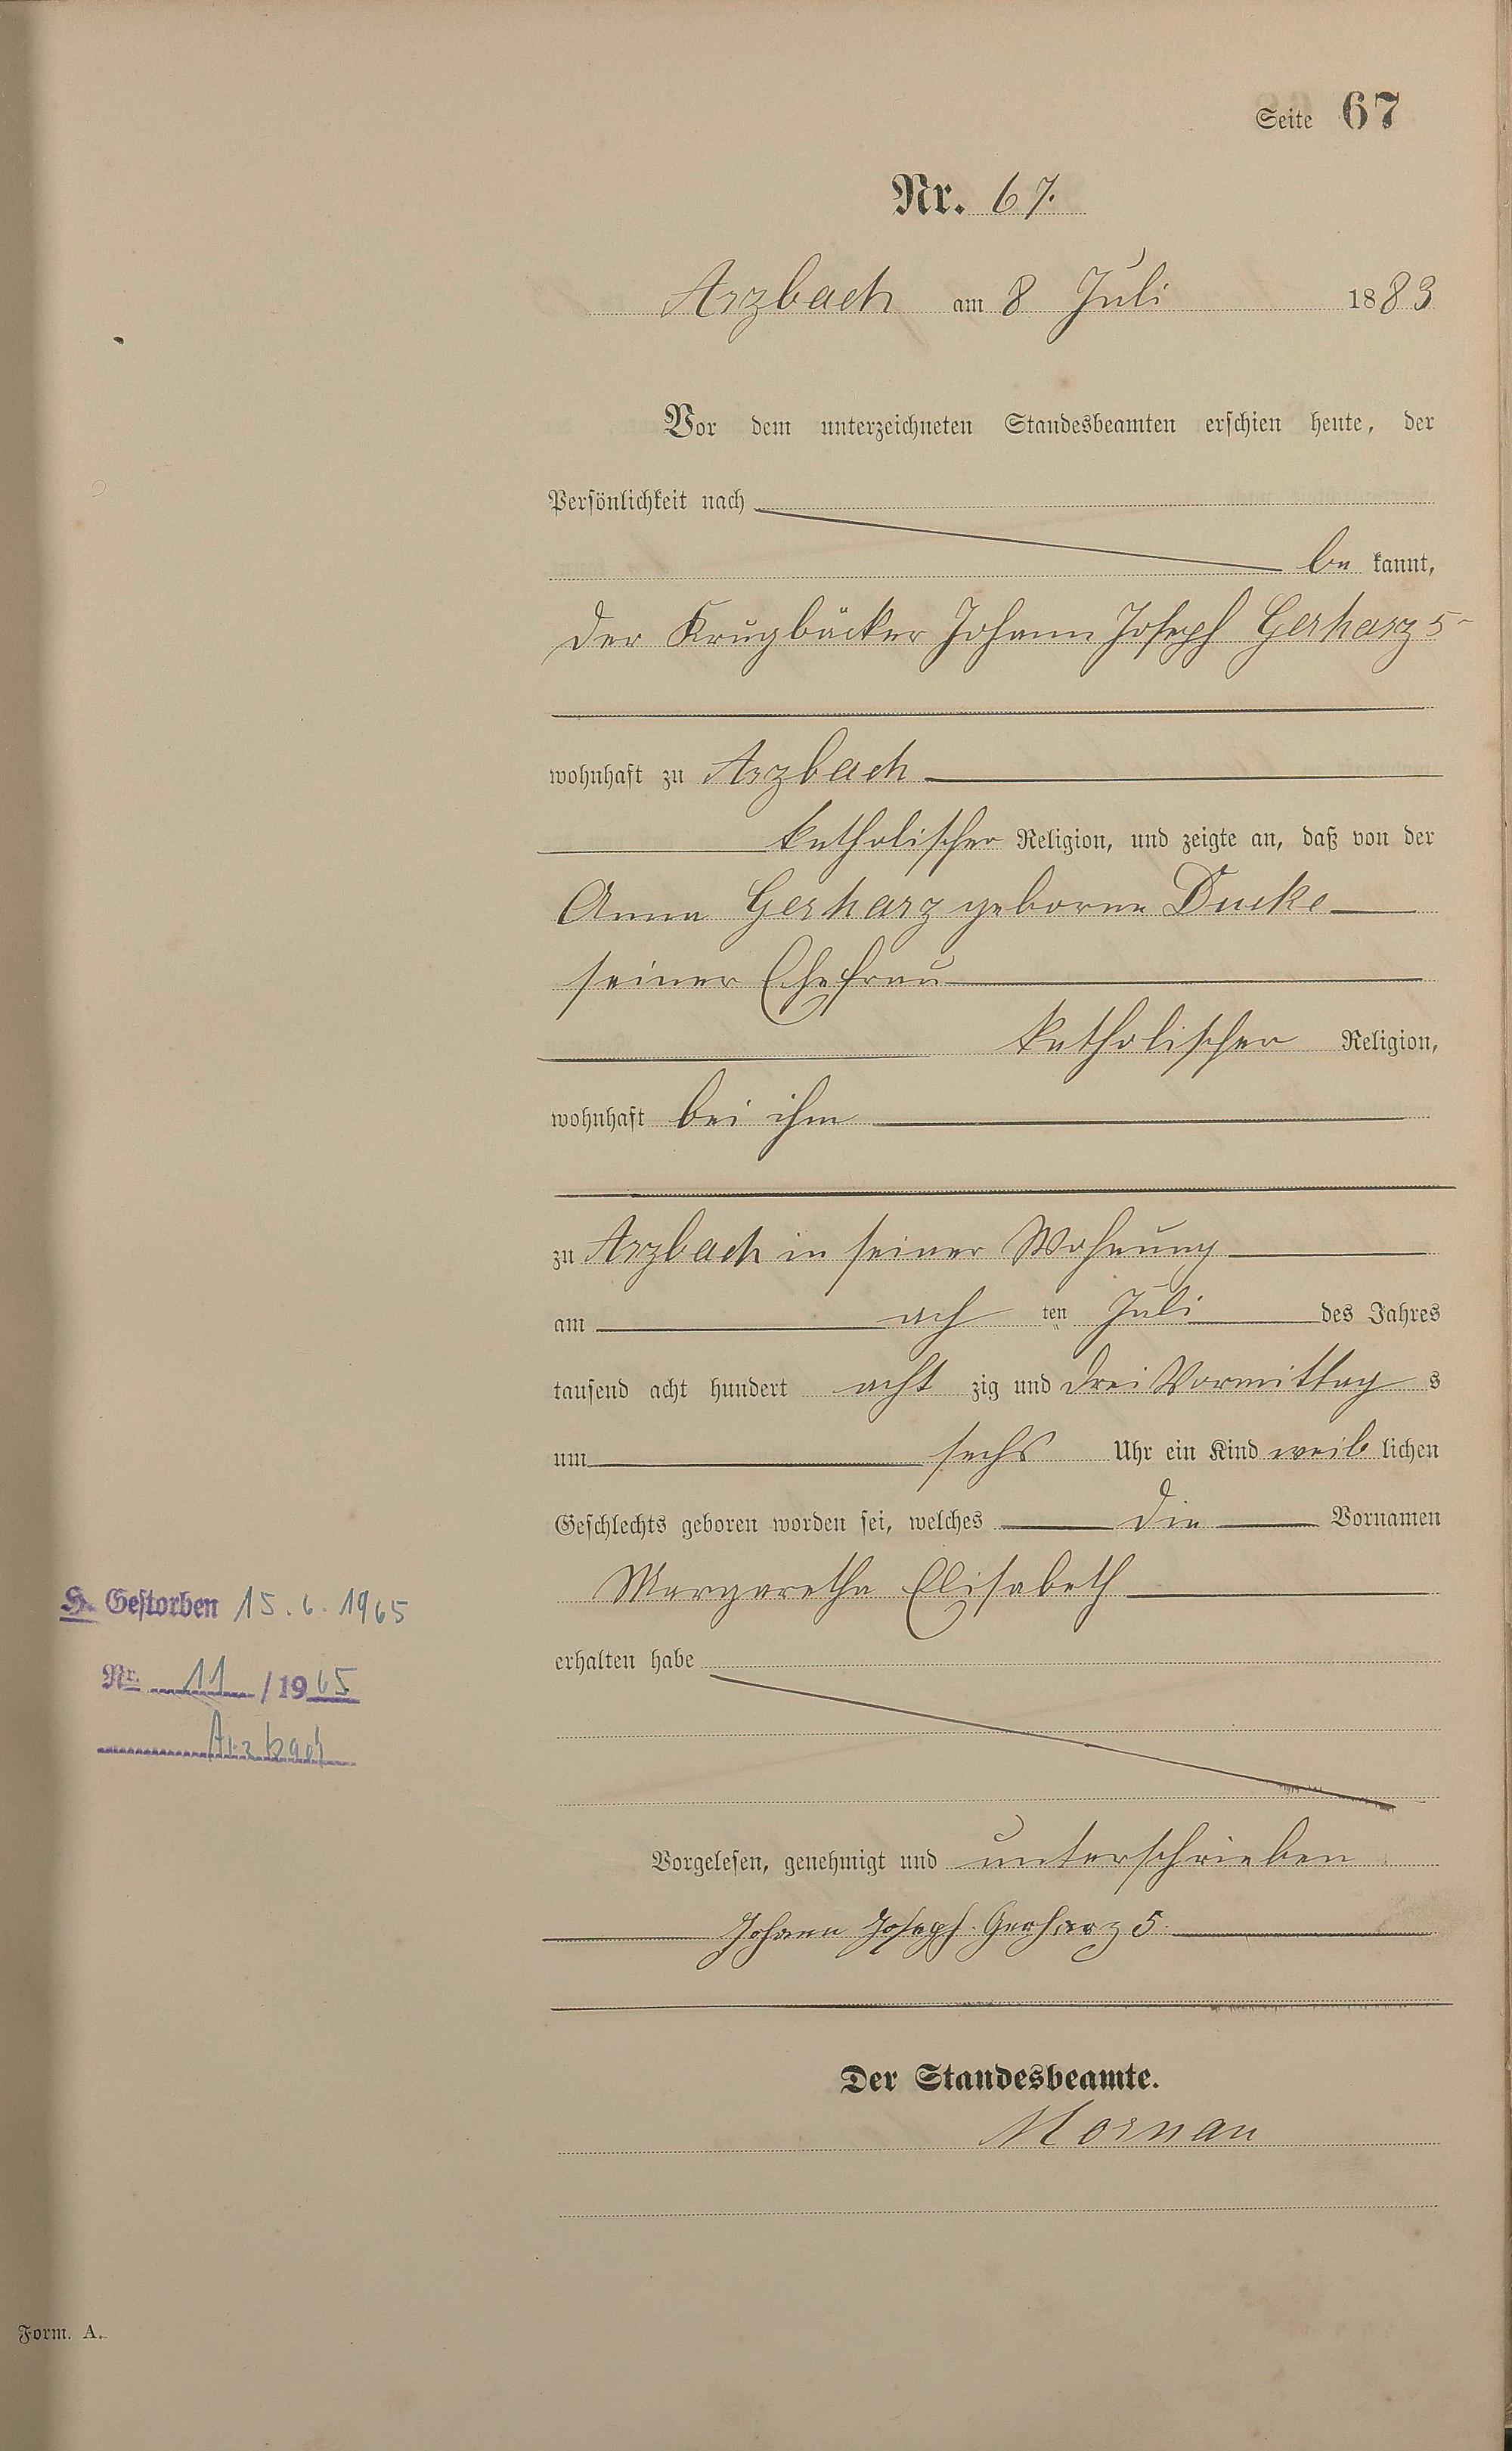 Seite 67
Nr. 67.
Arzbach am 8 Juli 1883
Vor dem unterzeichneten Standesbeamten erschien heute, der
Persönlichkeit nach
be kannt,
der Krugbäcker Johann Joseph Gerharz 5
wohnhaft zu Arzbach
katholischer Religion, und zeigte an, daß von der
Anna Gerharz geborne Ducke
seiner Ehefrau
katholischer Religion,
wohnhaft bei ihm
zu Arzbach in seiner Wohnung
am ach ten Juli des Jahres
tausend acht hundert acht zig und drei Vormittag s
um sechs Uhr ein Kind weib lichen
Geschlechts geboren worden sei, welches die Vornamen
Margaretha Elisabeth
erhalten habe
Vorgelesen, genehmigt und unterschrieben
Johann Joseph Gerharz 5.
Der Standesbeamte.
Mornau
H. Gestorben 15.6.1965
Nr. 11 / 1965
Arzbach
Form. A.